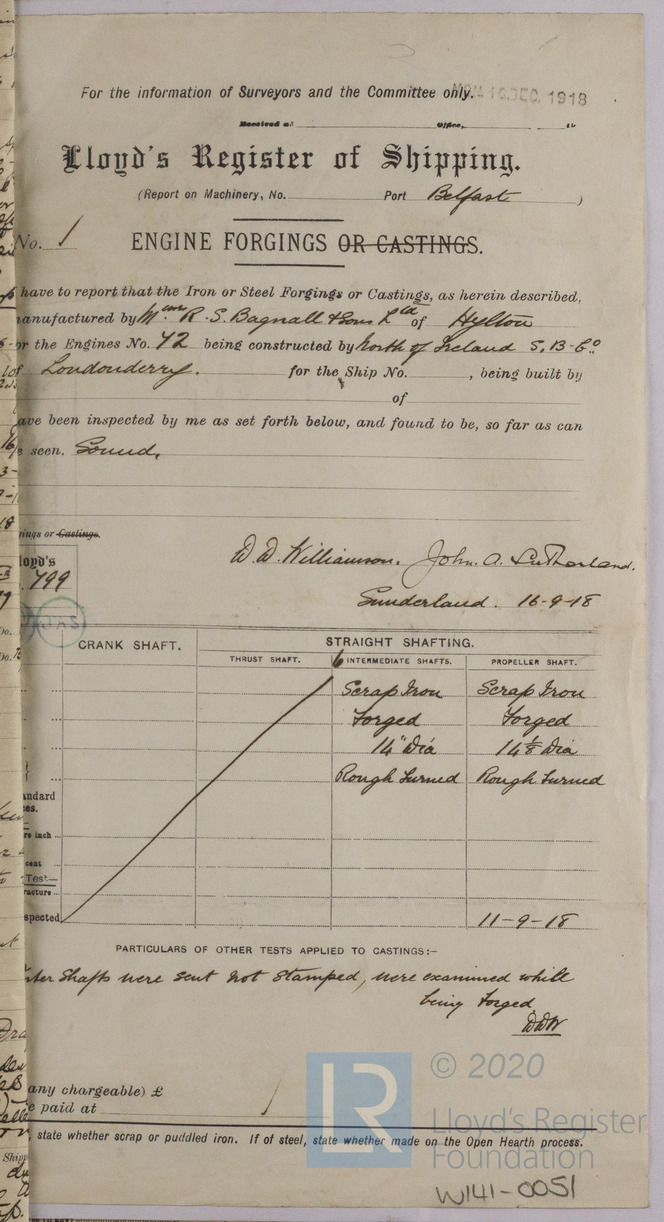 For the information of Surveyors and the Committee only.
MON. 16 DEC. 1918
Received at Office, 19
Lloyd's Register of Shipping.
(Report on Machinery, No. Port Belfast )
No. 1
ENGINE FORGINGS OR CASTINGS.
have to report that the Iron or Steel Forgings or Castings, as herein described,
manufactured by Messrs R. S. Bagnall & Sons Ltd of Hylton
or the Engines No. 42 being constructed by North of Ireland S. B. Co.
of Londonderry. for the Ship No. , being built by
of
ave been inspected by me as set forth below, and found to be, so far as can
e seen. Sound,
ings or Castings.
loyd's
799
D. D. Williamson. John. A. Sutherland.
Sunderland. 16-9-18
CRANK SHAFT. STRAIGHT SHAFTING.
THRUST SHAFT. 6 INTERMEDIATE SHAFTS. PROPELLER SHAFT.
Scrap Iron Scrap Iron
Forged Forged
14" Dia 14 1/8 Dia
Rough Turned Rough Turned
andard
es.
re inch
cent
Test—
racture
spected 11-9-18
PARTICULARS OF OTHER TESTS APPLIED TO CASTINGS:-
nter Shafts were sent not stamped, were examined whill
being Forged.
DDW
any chargeable) £
e paid at
, state whether scrap or puddled iron. If of steel, state whether made on the Open Hearth process.
LR © 2020
Lloyd's Register
Foundation
W141-0051